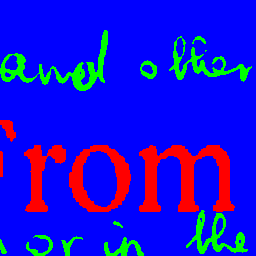 and other
From
or in the